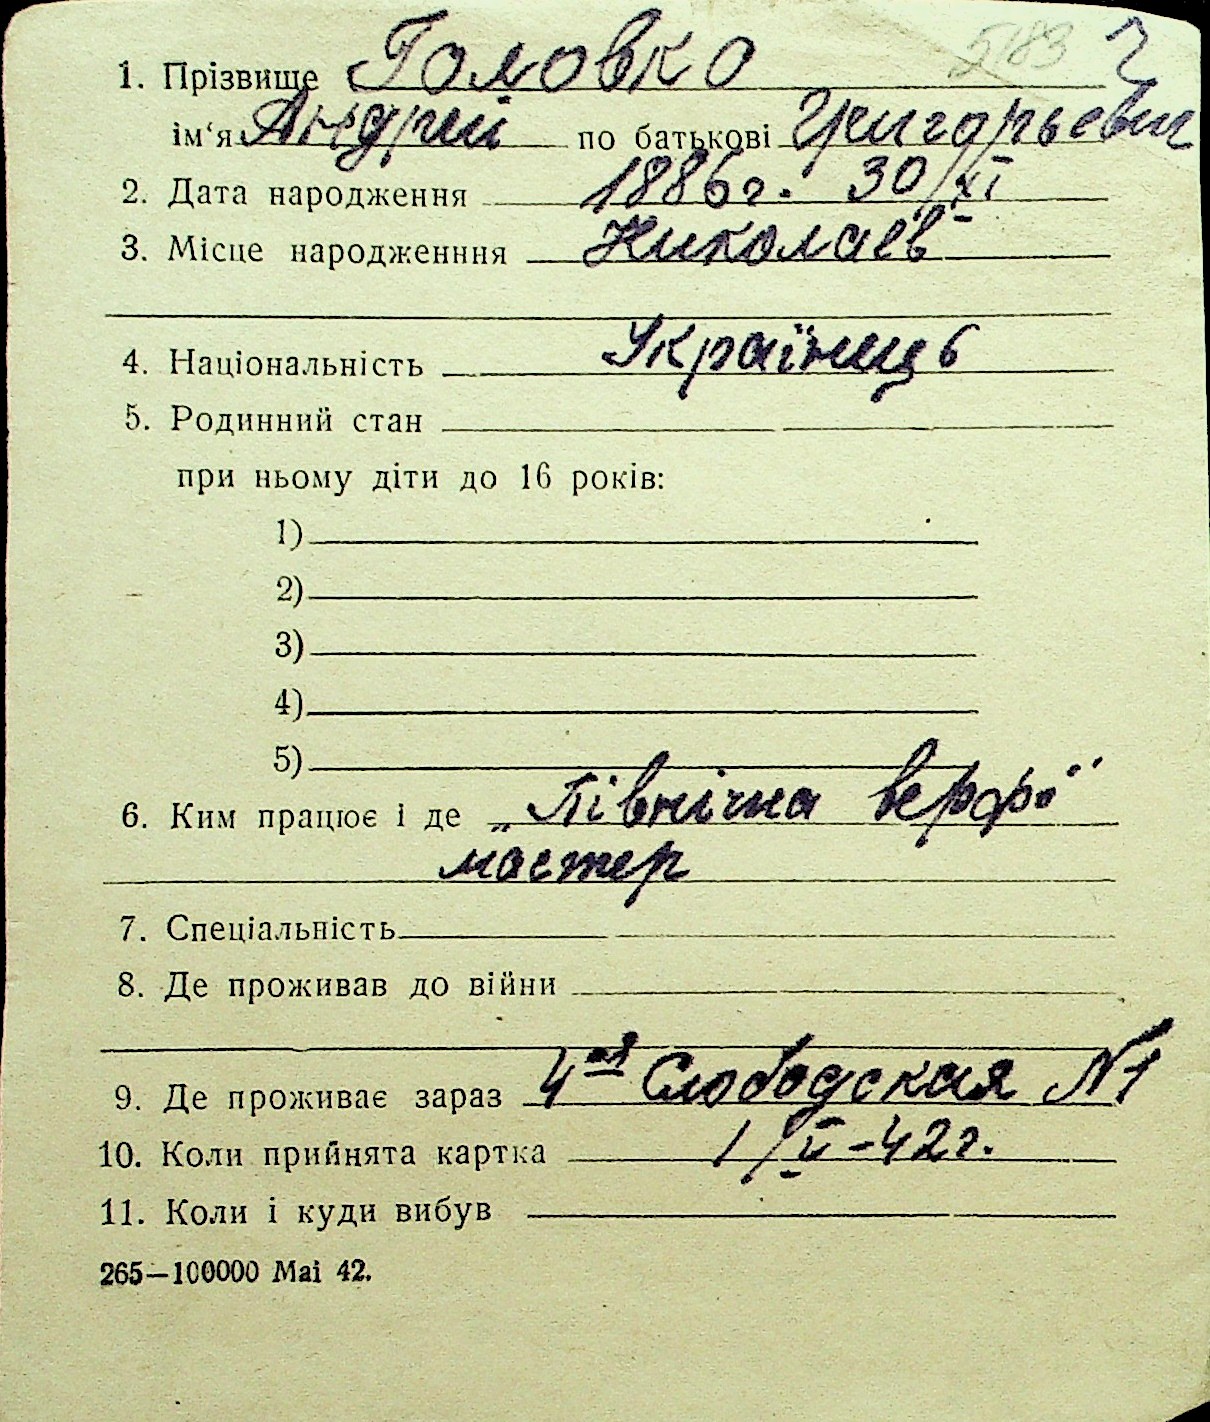 5183 2
1. Прізвище Головко
ім‘я Андрей по батькові Григорьевич
2. Дата народження 1886г. 30/XI
3. Місце народженння Николаев
4. Національність Українець
5. Родинний стан
при ньому діти до 16 років:
1)
2)
3)
4)
5)
6. Ким працює і де „Північна верфь"
мастер
7. Спеціальність
8. Де проживав до війни
9. Де проживає зараз 4ая Слободская №1
10. Коли прийнята картка 1/V-42г.
11. Коли і куди вибув
265—100000 Mai 42.